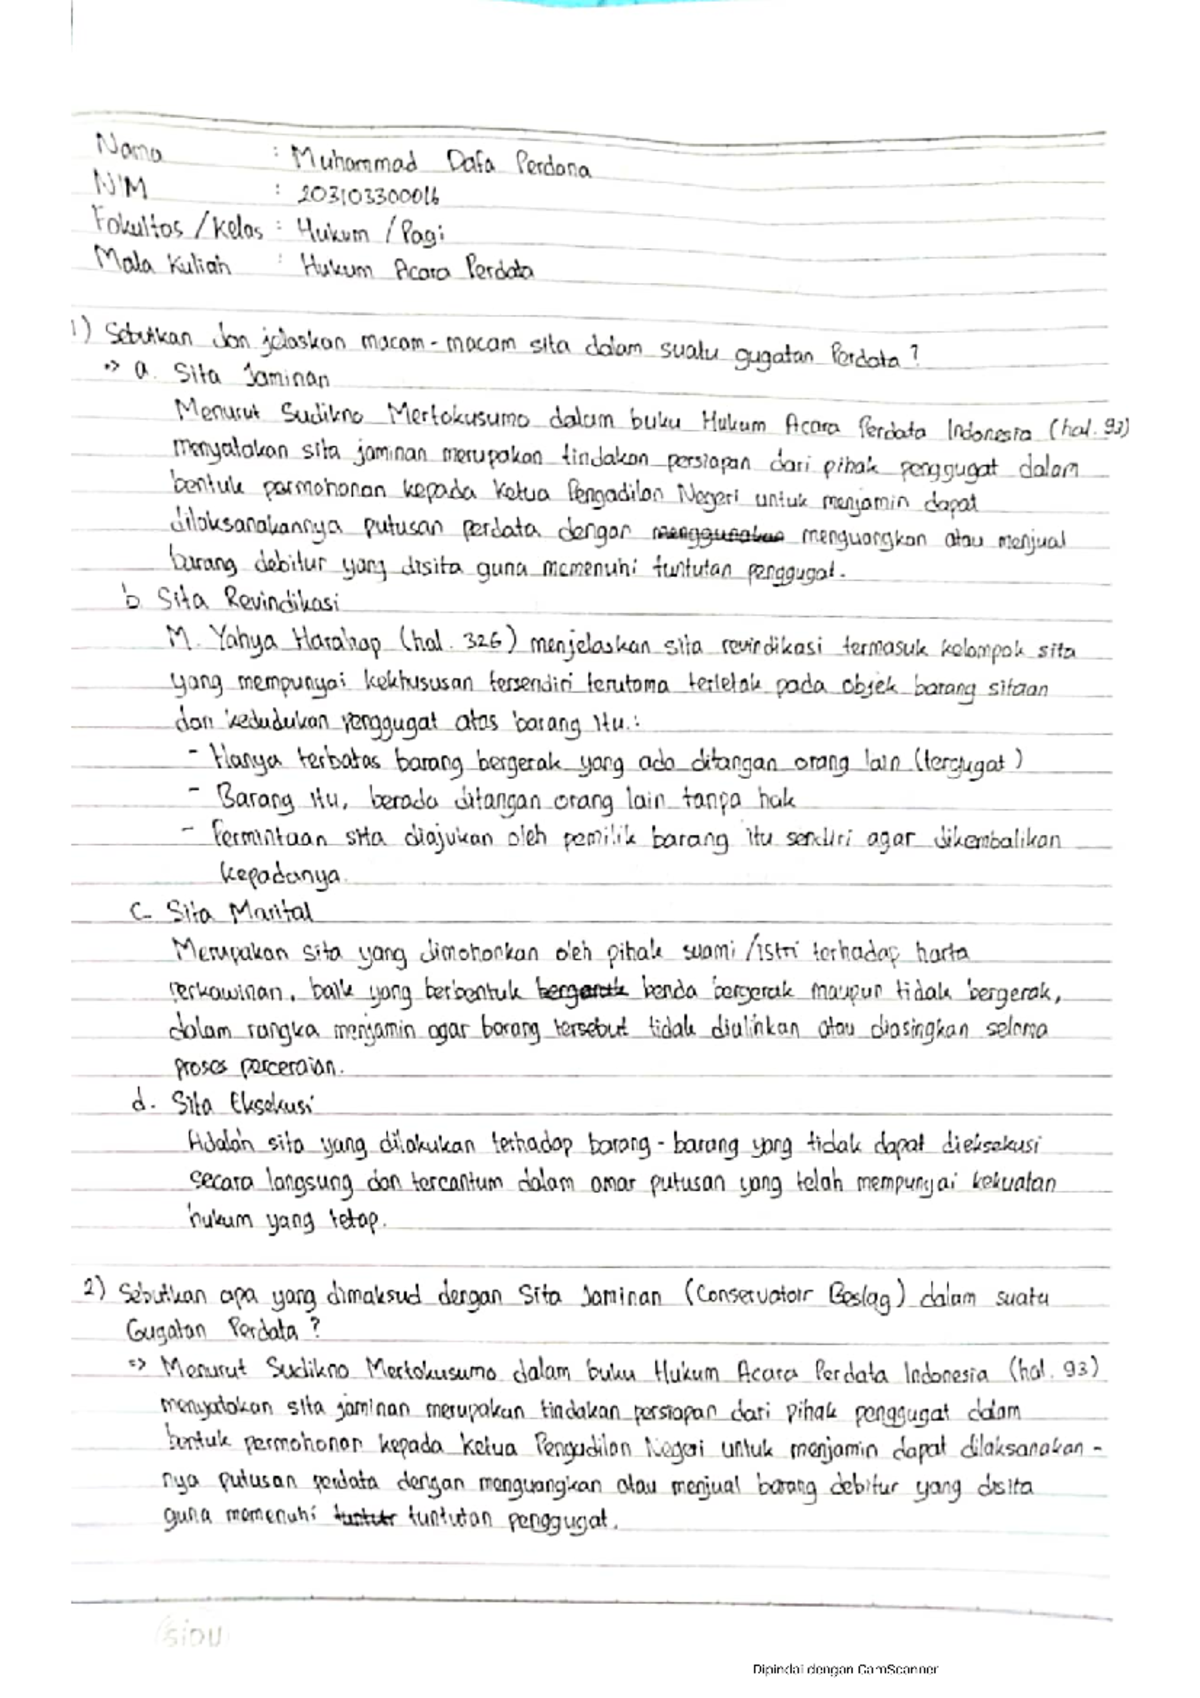 Nama : Muhammad Dafa Perdana
NIM : 203103300016
Fakultas /Kelas : Hukum / Pagi
Mata Kuliah : Hukum Acara Perdata
1) Sebutkan dan jelaskan macam-macam sita dalam suatu gugatan Perdata ?
=> a. Sita Jaminan
Menurut Sudikno Mertokusumo dalam buku Hukum Acara Perdata Indonesia (hal. 93)
menyatakan sita jaminan merupakan tindakan persiapan dari pihak penggugat dalam
bentuk permohonan kepada Ketua Pengadilan Negeri untuk menjamin dapat
dilaksanakannya putusan perdata dengan menggunakan menguangkan atau menjual
barang debitur yang disita guna memenuhi tuntutan penggugat.
b. Sita Revindikasi
M. Yahya Harahap (hal. 326) menjelaskan sita revindikasi termasuk kelompok sita
yang mempunyai kekhususan tersendiri terutama terletak pada objek barang sitaan
dan kedudukan penggugat atas barang itu.:
- Hanya terbatas barang bergerak yang ada ditangan orang lain (tergugat)
- Barang itu, berada ditangan orang lain tanpa hak
- Permintaan sita diajukan oleh pemilik barang itu sendiri agar dikembalikan
kepadanya.
c. Sita Marital
Merupakan sita yang dimohonkan oleh pihak suami /istri terhadap harta
perkawinan, baik yang berbentuk bergerak benda bergerak maupun tidak bergerak,
dalam rangka menjamin agar barang tersebut tidak dialinkan atau diasingkan selama
proses perceraian.
d. Sita Eksekusi
Adalah sita yang dilakukan terhadap barang-barang yang tidak dapat dieksekusi
secara langsung dan tercantum dalam amar putusan yang telah mempunyai kekuatan
hukum yang tetap.
2) Sebutkan apa yang dimaksud dengan Sita Jaminan (Conservatoir Beslag) dalam suatu
Gugatan Perdata ?
=> Menurut Sudikno Mertokusumo dalam buku Hukum Acara Perdata Indonesia (hal. 93)
menyatakan sita jaminan merupakan tindakan persiapan dari pihak penggugat dalam
bentuk permohonan kepada Ketua Pengadilan Negeri untuk menjamin dapat dilaksanakan-
nya putusan perdata dengan menguangkan atau menjual barang debitur yang disita
guna memenuhi tuntutr tuntutan penggugat.
SIDU
Dipindai dengan CamScanner